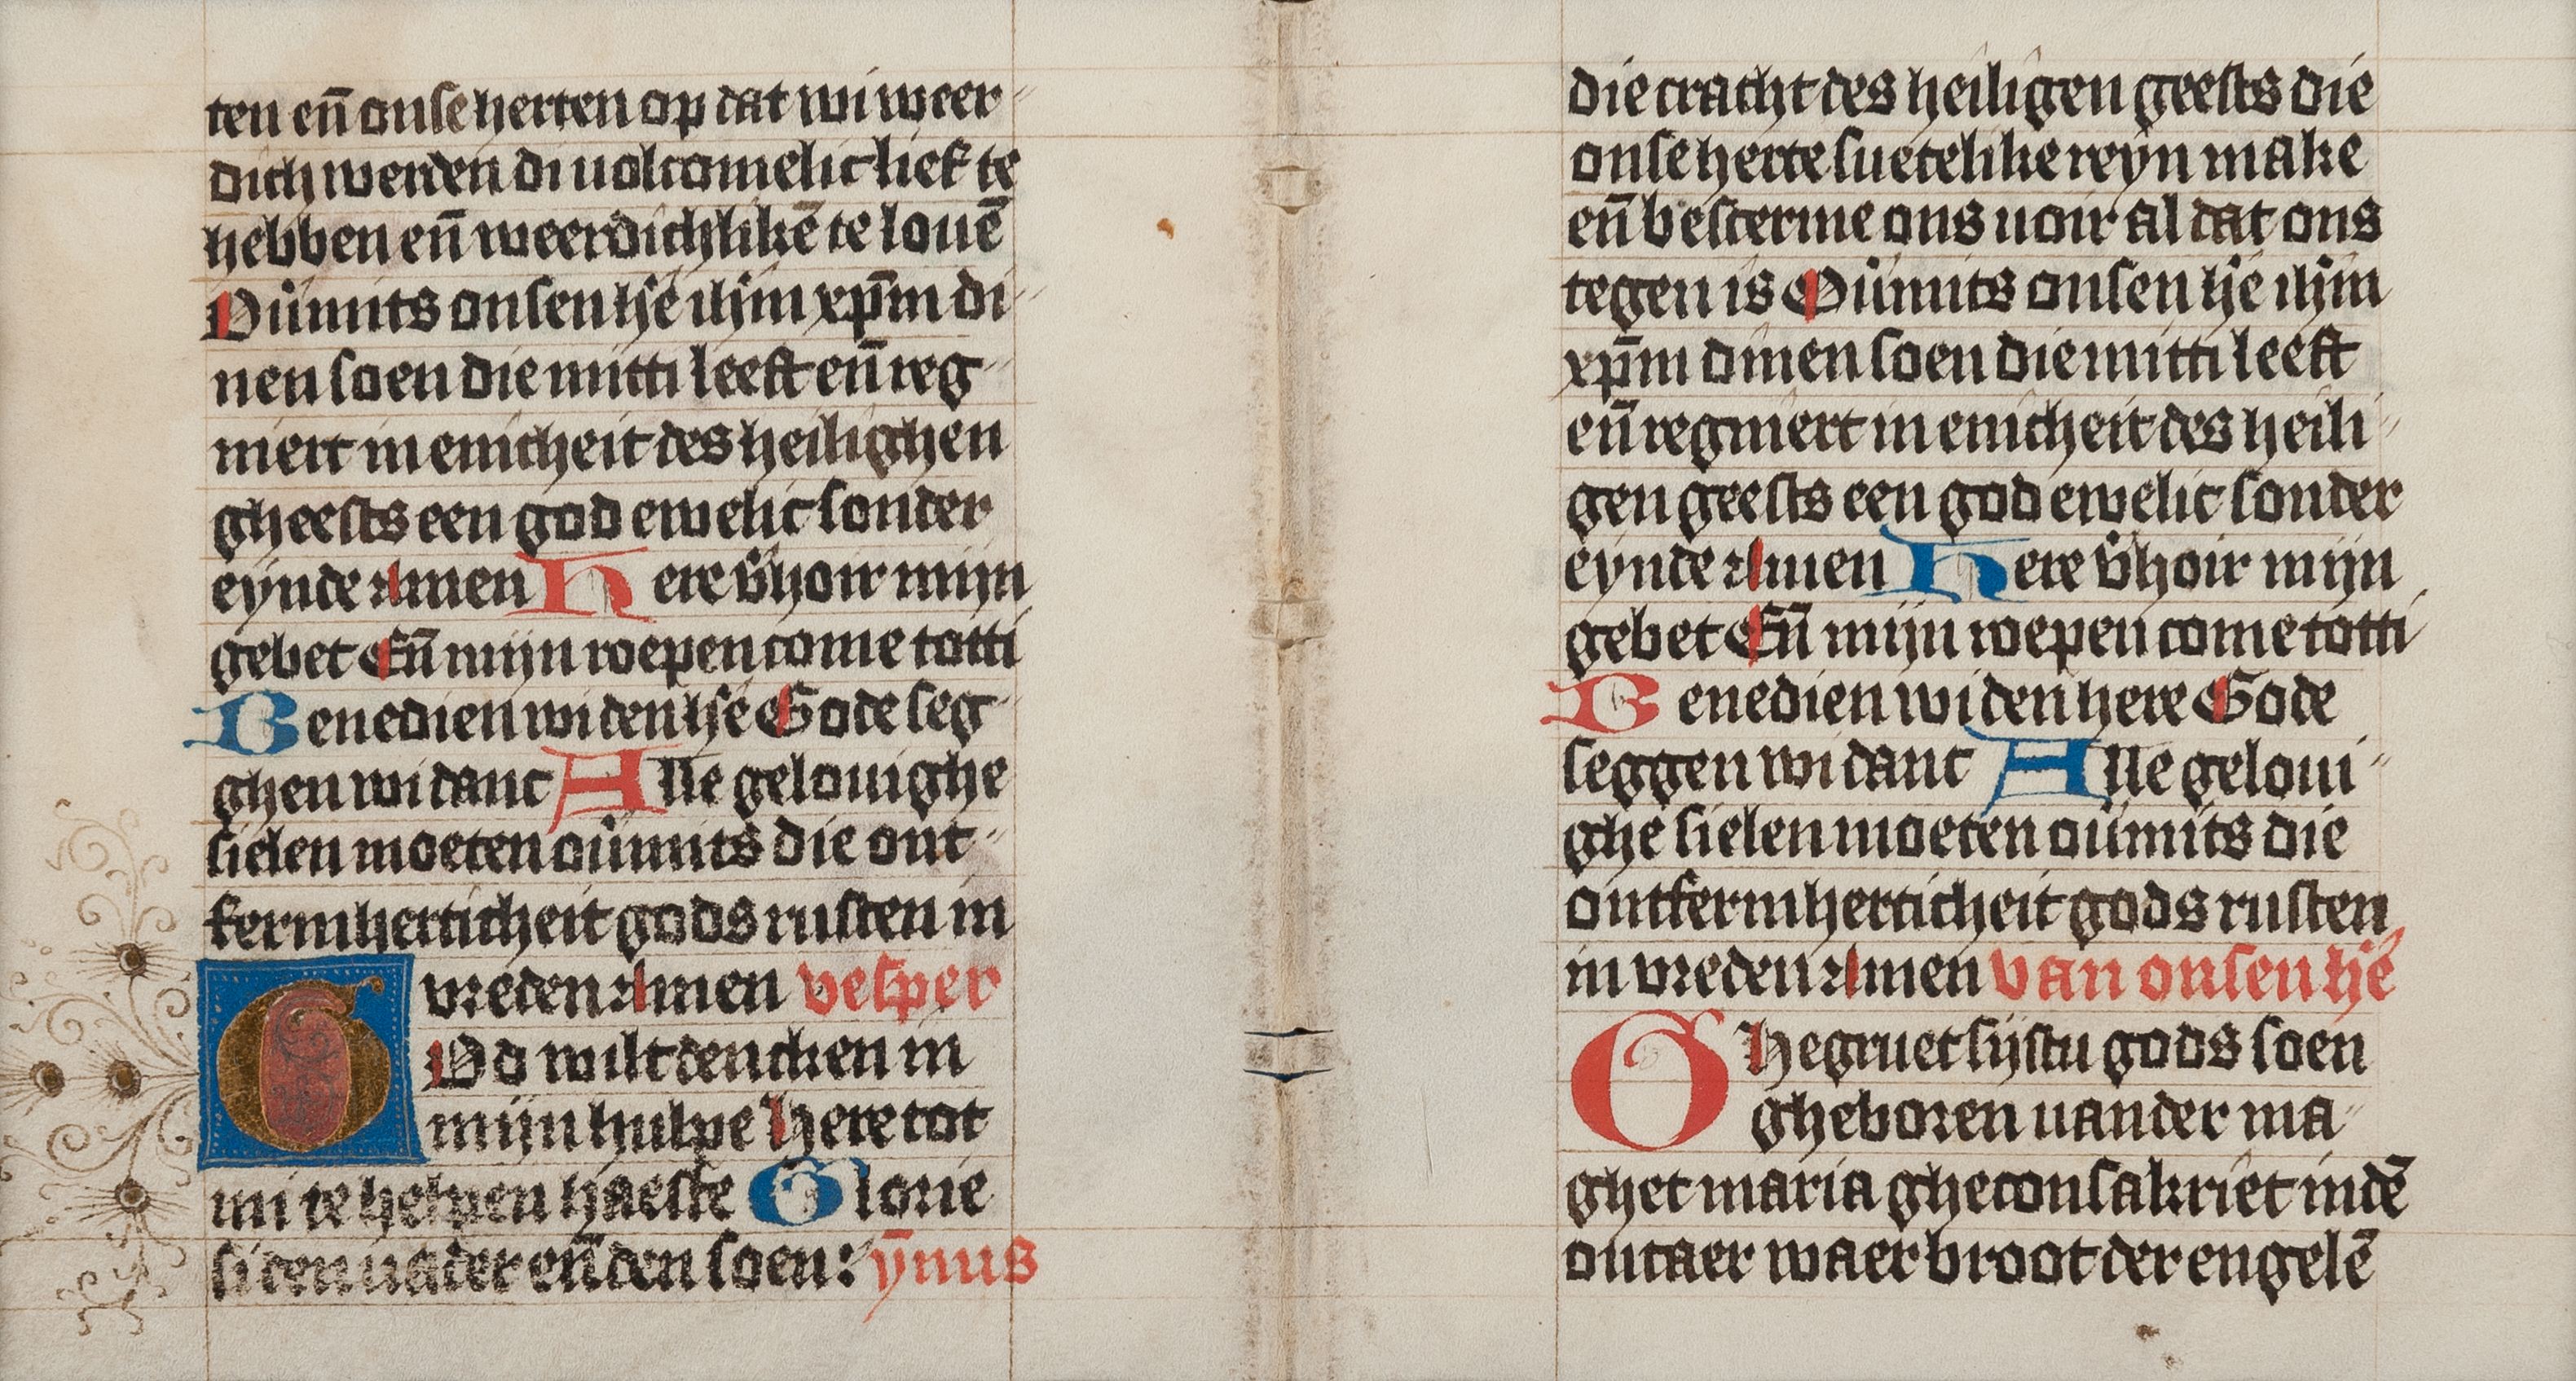 ten en̄ onse herten op dat wi weer
dich werden di uolcomelic lief te
hebben en̄ weerdichlikē te louē
Ouͥmits onsen he͛ ihm xp̄m di
nen soen die mitti leeft en̄ reg
niert in enicheit des heilighen
gheests een god ewelic sonder
eynde Amen Here v̄hoir mijn
gebet En̄ mijn roepen come totti
Benedien wi den he͛ Gode seg
ghen wi danc Alle gelouighe
sielen moeten ouͥmits die ont
fermherticheit gods rusten in
vreden Amen vesper
GOd wilt dencken in
mijn hulpe Here tot
mi te helpen haeste Glorie
si den uader en̄ den soen: ȳnus
die cracht des heiligen geests die
onse herte suetelike reyn make
en̄ bescerme ons uoir al dat ons
tegen is Ouͥmits onsen he͛ ihm
xp̄m dinen soen die mitti leeft
en̄ regniert in enicheit des heili
gen geests een god ewelic sonder
eynde Amen Here v̄hoir mijn
gebet En̄ mijn roepen come totti
Benedien wi den here Gode
seggen wi danc Alle geloui
ghe sielen moeten ouͥmits die
ontfermherticheit gods rusten
in vreden Amen van onsen he͛
GHegruet sijstu gods soen
gheboren uander ma
ghet maria gheconsakriet indē
outaer waer broot der engelē